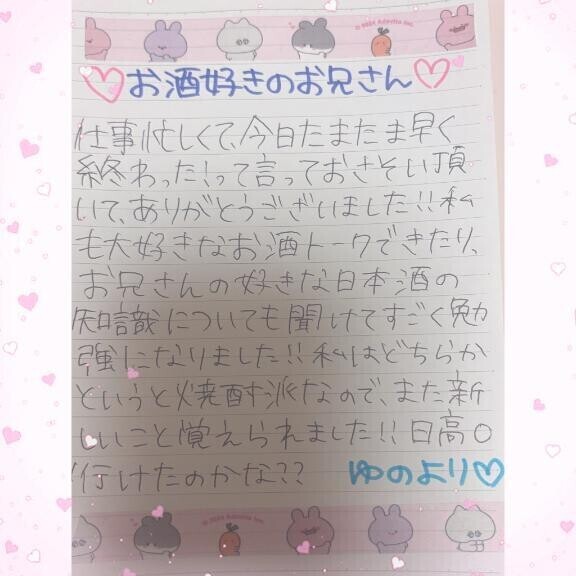 © 2024 Adeetto Inc.
♡お酒好きのお兄さん♡
仕事忙しくて、今日たまたま早く
終わった!って言っておさそい頂
いて、ありがとうございました!!私
も大好きなお酒トークできたり、
お兄さんの好きな日本酒の
知識についても聞けてすごく勉
強になりました!!私はどちらか
というと焼酎派なので、また新
しいこと覚えられました!!日高○
行けたのかな??
ゆのより♡